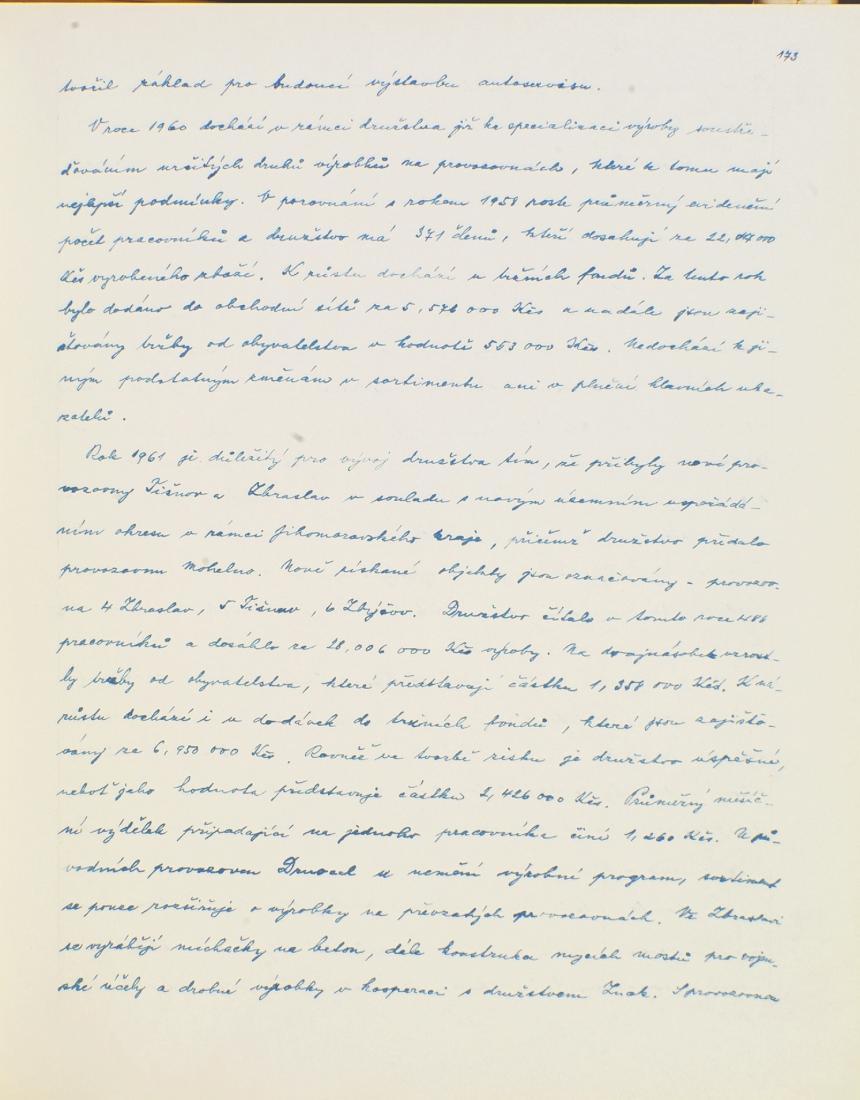 173
tvořil základ pro budoucí výstavbu autoservisu.
V roce 1960 dochází v rámci družstva již ke specializaci výroby soustře-
ďováním určitých druhů výrobků na provozovnách, které k tomu mají
nejlepší podmínky. V porovnání s rokem 1958 roste průměrný evidenční
počet pracovníků a družstvo má 371 členů, kteří dosahují za 22,
Kčs vyrobeného zboží. K růstu dochází u tržních fondů. Za tento rok
bylo dodáno do obchodní sítě za 5,576 000 Kčs a nadále jsou zaji-
šťovány tržby od obyvatelstva v hodnotě 553 000 Kčs. Nedochází k ji-
ným podstatným změnám v sortimentu ani v plnění hlavních uka-
zatelů.
Rok 1961 je důležitý pro vývoj družstva tím, že přibyly nové pro-
vozovny Tišnov a Zbraslav v souladu s novým územním uspořádá-
ním okresu v rámci Jihomoravského kraje, přičemž družstvo předalo
provozovnu Mohelno. Nově získané objekty jsou označovány - provozov-
na 4 Zbraslav, 5 Tišnov, 6 Zbýšov. Družstvo čítalo v tomto roce 486
pracovníků a dosáhlo za 28,006 000 Kčs výroby. Na dvojnásobek vzrost-
ly tržby od obyvatelstva, které představují částku 1,358 000 Kčs. K
růstu dochází i u dodávek do tržních fondů, které jsou zajišťo-
vány za 6,950 000 Kčs. Rovněž ve tvorbě zisku je družstvo úspěšné,
neboť jeho hodnota představuje částku 2,426 000 Kčs. Průměrný měsíč-
ní výdělek připadající na jednoho pracovníka činí 1,260 Kčs. U pů-
vodních provozoven Druocel se nemění výrobní program, sortiment
se pouze rozšiřuje o výrobky na převzatých provozovnách. Ve Zbraslavi
se vyrábějí míchačky na beton, dále konstrukce mycích mostů pro vojen-
ské účely a drobné výrobky v kooperaci s družstvem Znak. S provozovnou